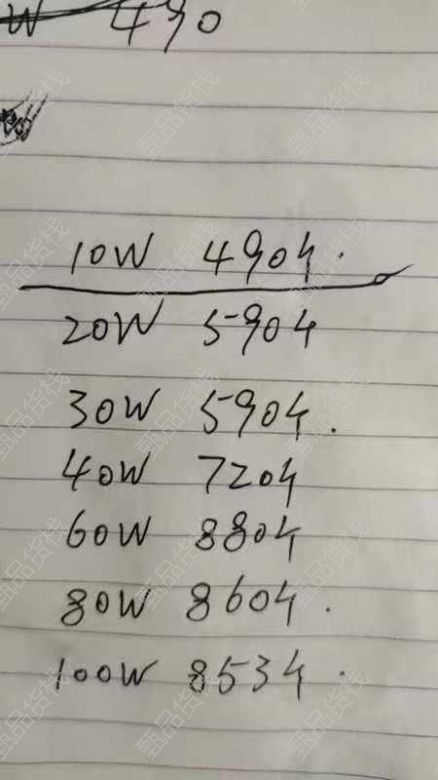 W 490
10W 4904.
20W 5904
30W 5904.
40W 7204
60W 8804
80W 8604.
100W 8534.
甄品货栈